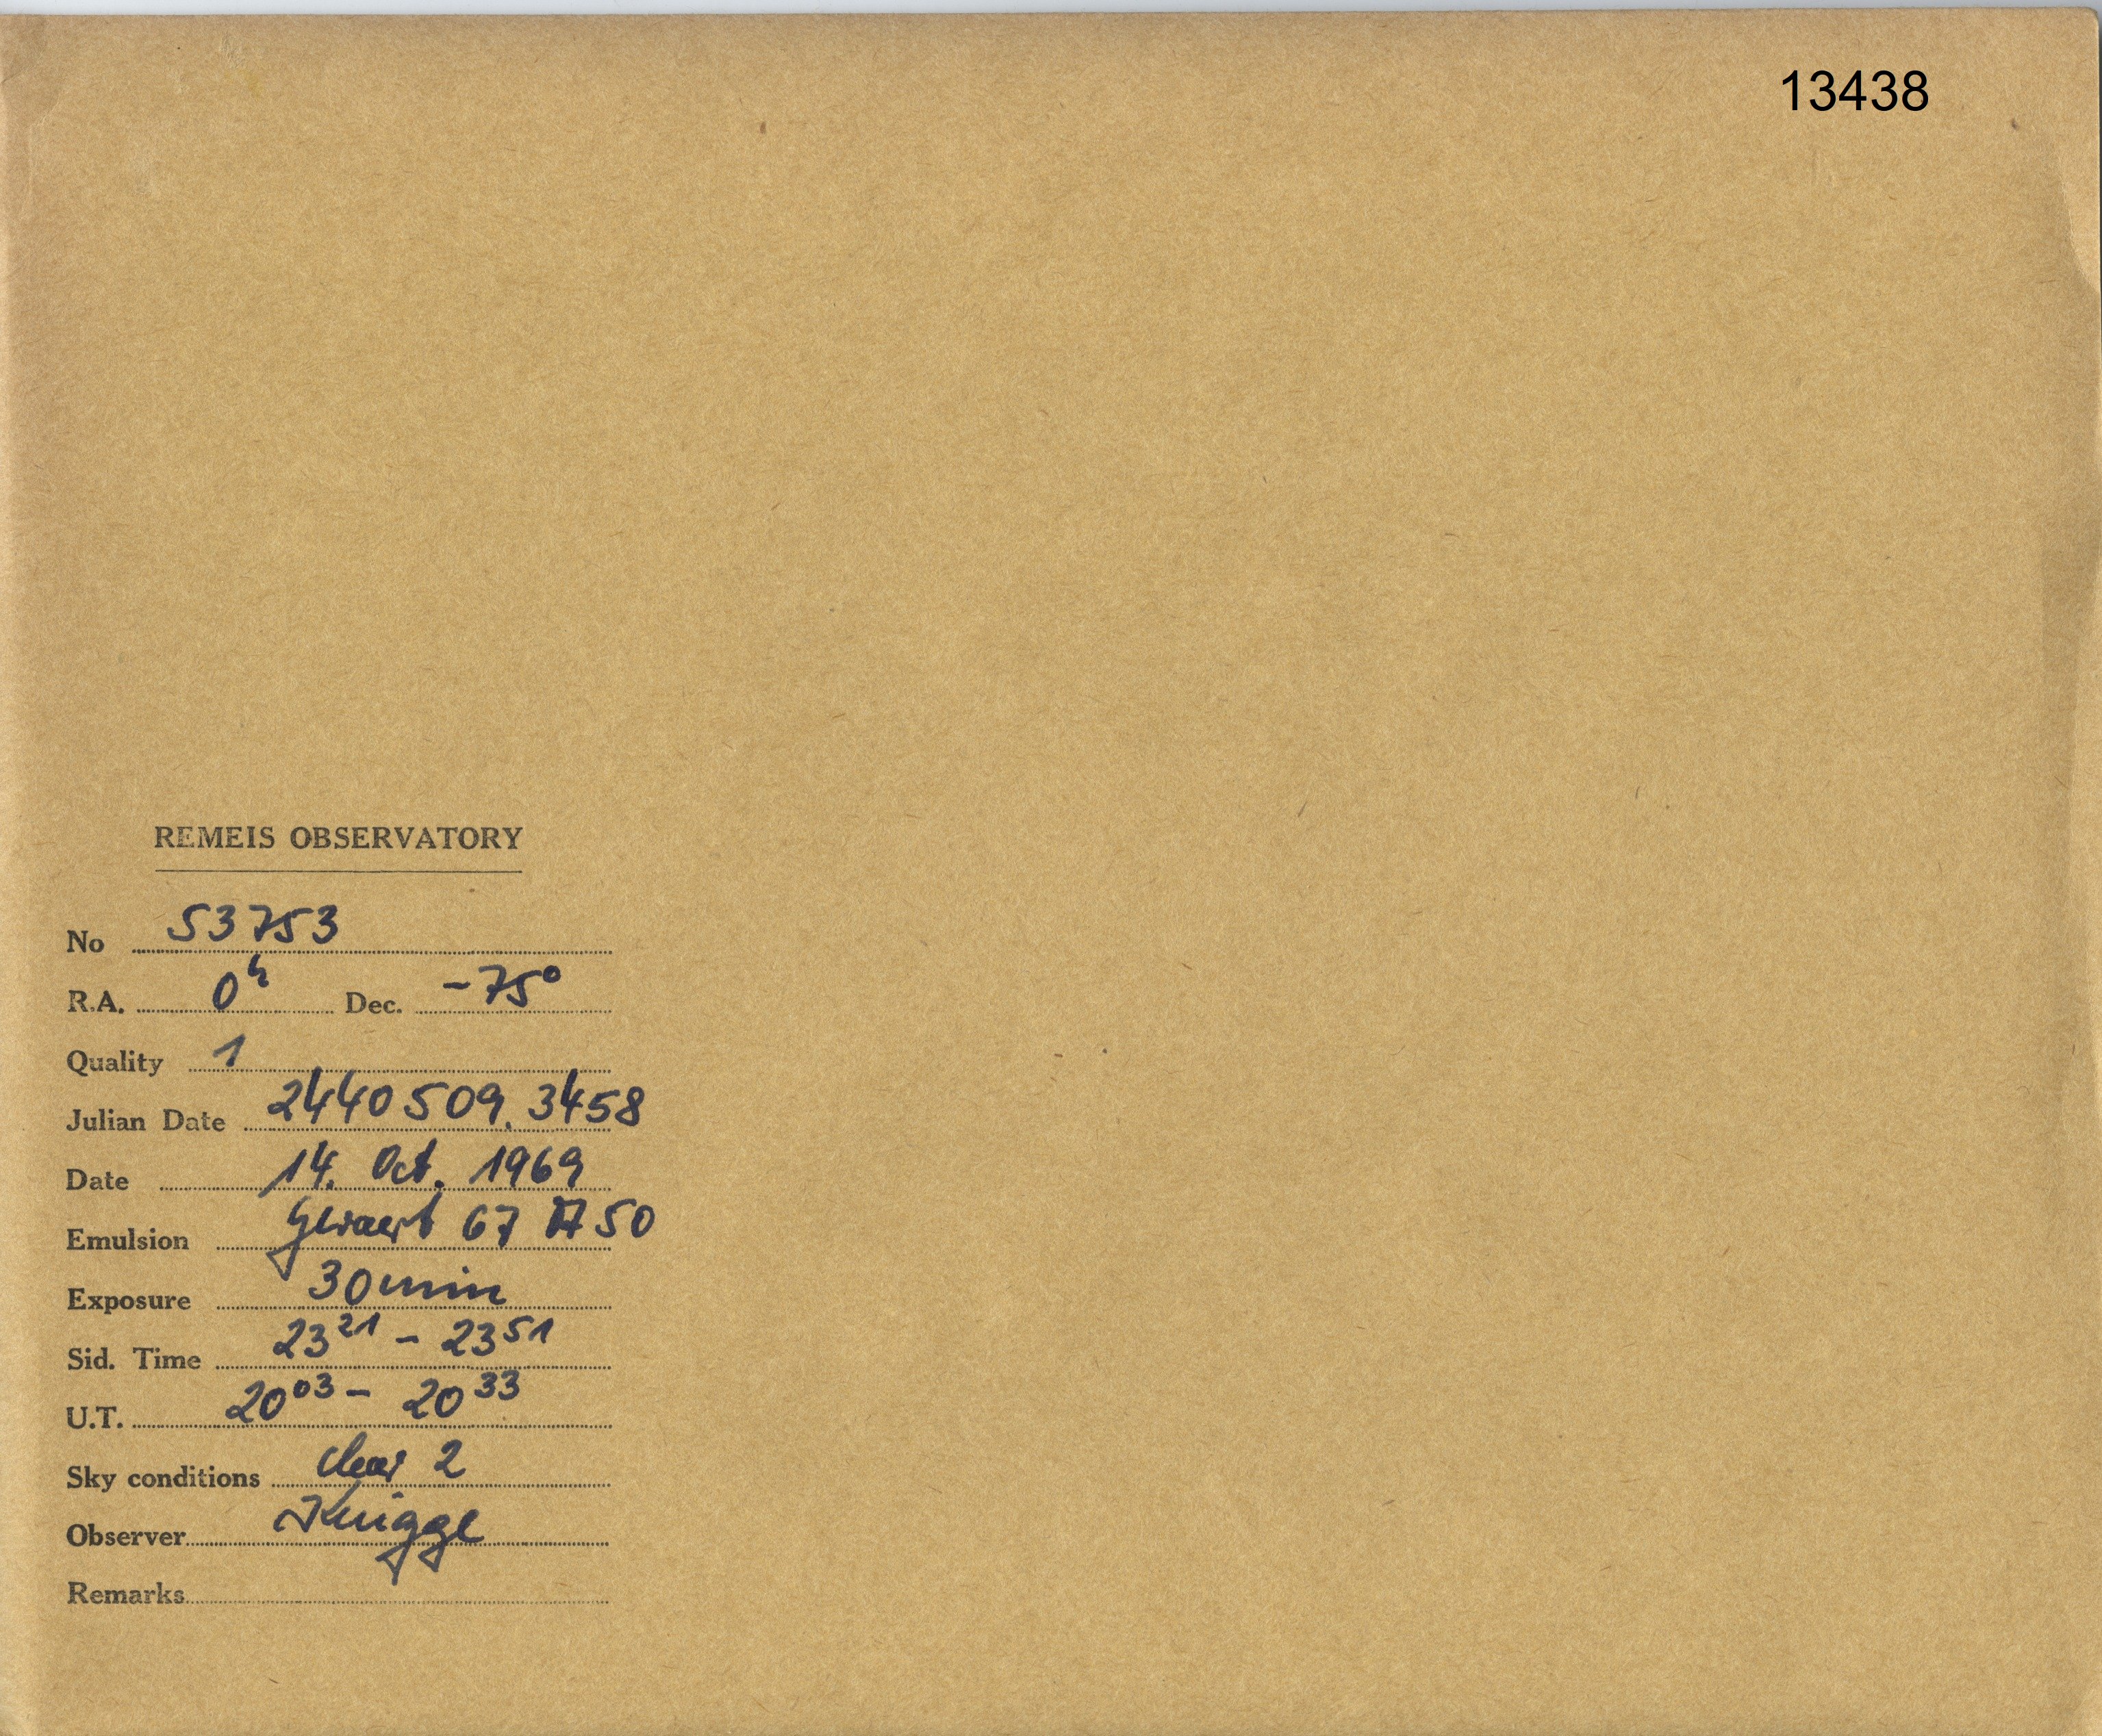 13438
REMEIS OBSERVATORY
No 53753
R.A. 0h Dec. -75°
Quality 1
Julian Date 2440509.3458
Date 14. Oct. 1969
Emulsion Gevaert 67 A 50
Exposure 30 min
Sid. Time 23 21 - 23 51
U.T. 20 03 - 20 33
Sky conditions clear 2
Observer Knigge
Remarks